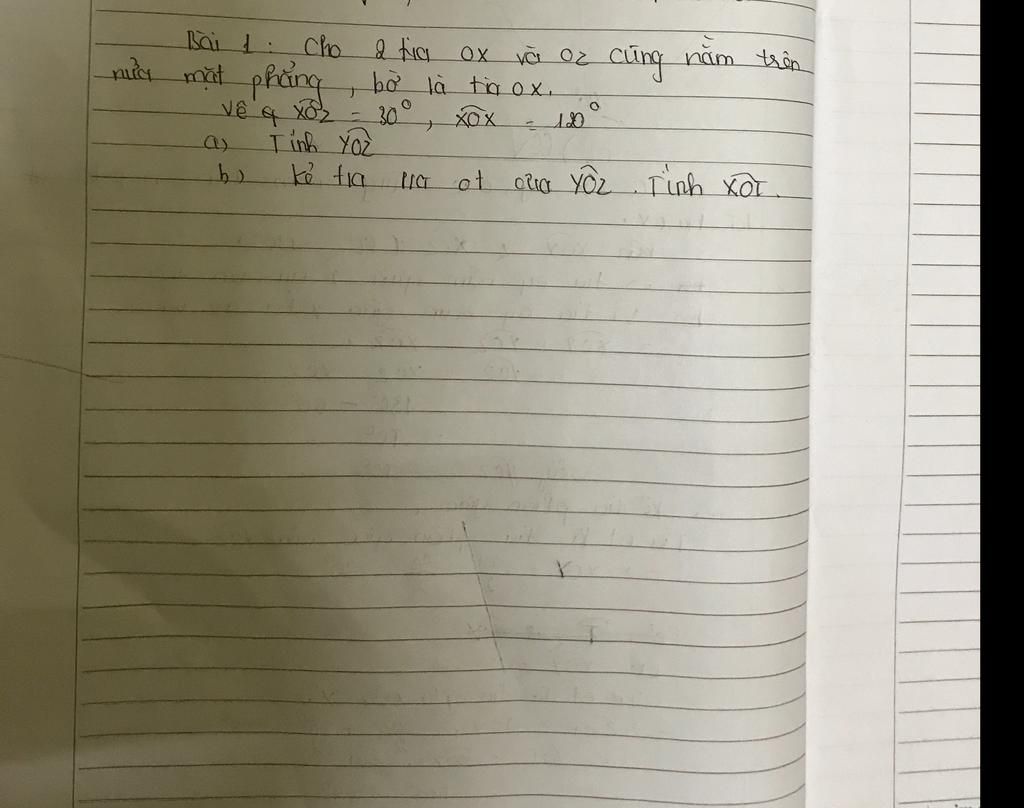 Bài 1 : Cho 2 tia OX và OZ cũng nằm trên
nửa mặt phẳng , bờ là tia OX.
Vẽ q XÔZ = 30° , XÔX = 120°
a) Tính YÔZ
b) Kẻ tia ot của YÔZ . Tính XÔT.
Y
T